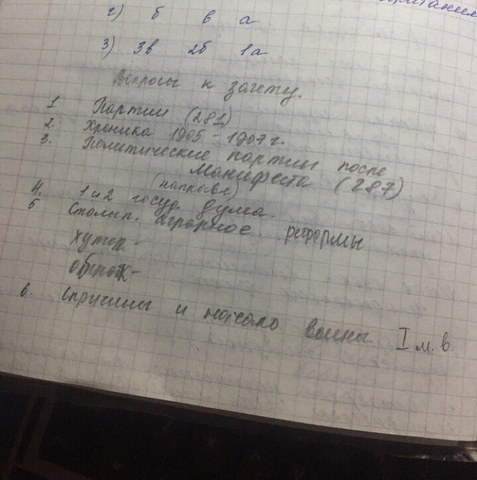 2) б в а
3) 3в 2б 1а
Вопросы к зачету.
1 Партии (281)
2. Хроника 1905-1907 г.
3. Политические партии после
Манифеста (287)
4. 1 и 2 госуд. дума.
5 Столып. аграрное. реформы
хутор-
отруб-
6. Причины и начало войны I м.в.